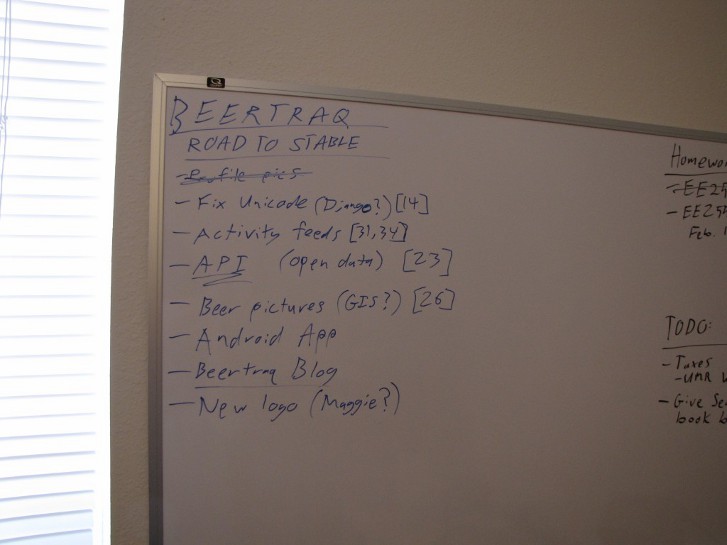 BEERTRAQ
ROAD TO STABLE
- Profile pics
- Fix Unicode (Django?) [14]
- Activity feeds [31,34]
- API (open data) [23]
- Beer pictures (GIS?) [26]
- Android App
- Beertraq Blog
- New logo (Maggie?)
Homewor
- EE25
- EE25
Feb. 1
TODO:
- Taxes
- UMR
- Give Se
book b